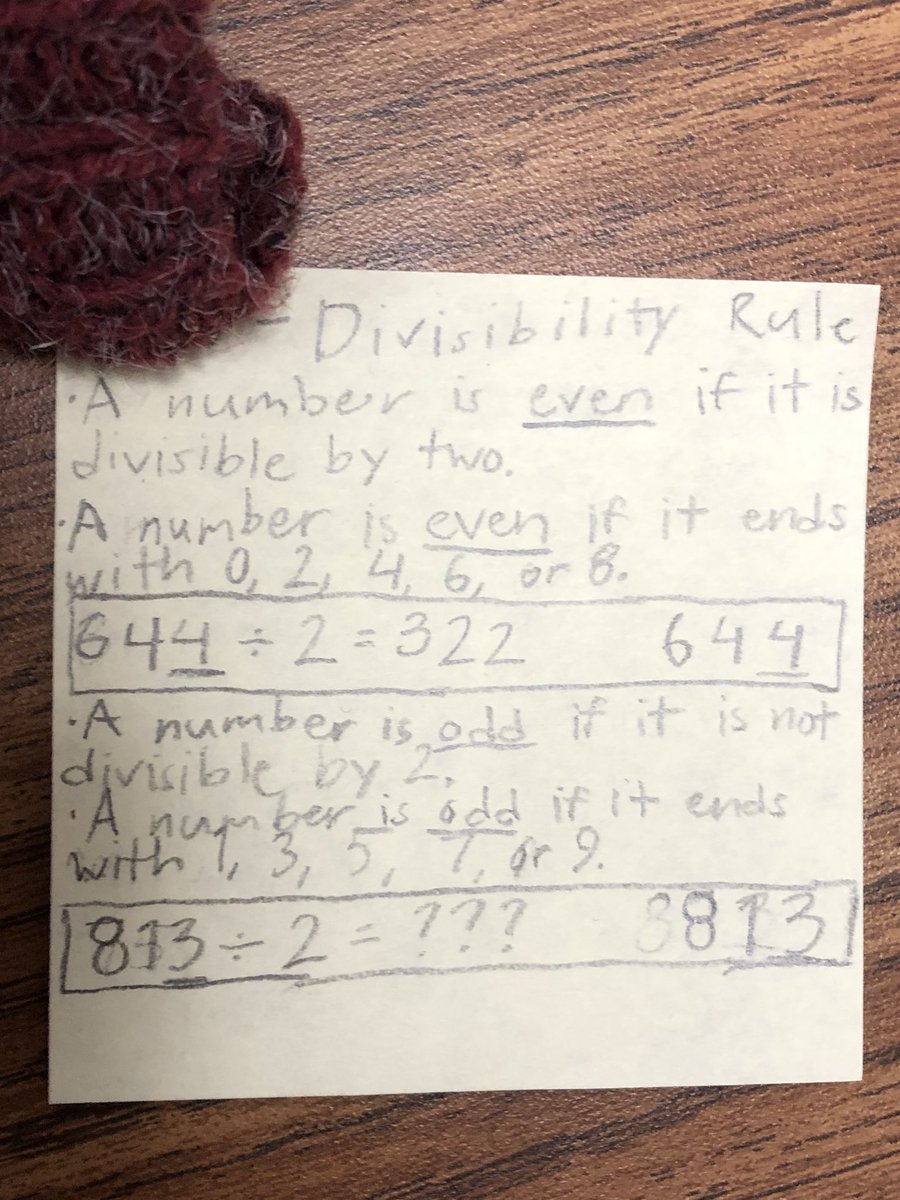 - Divisibility Rule
·A number is even if it is
divisible by two.
·A number is even if it ends
with 0, 2, 4, 6, or 8.
644 ÷ 2 = 322 644
·A number is odd if it is not
divisible by 2.
·A number is odd if it ends
with 1, 3, 5, 7, or 9.
813 ÷ 2 = ??? 813